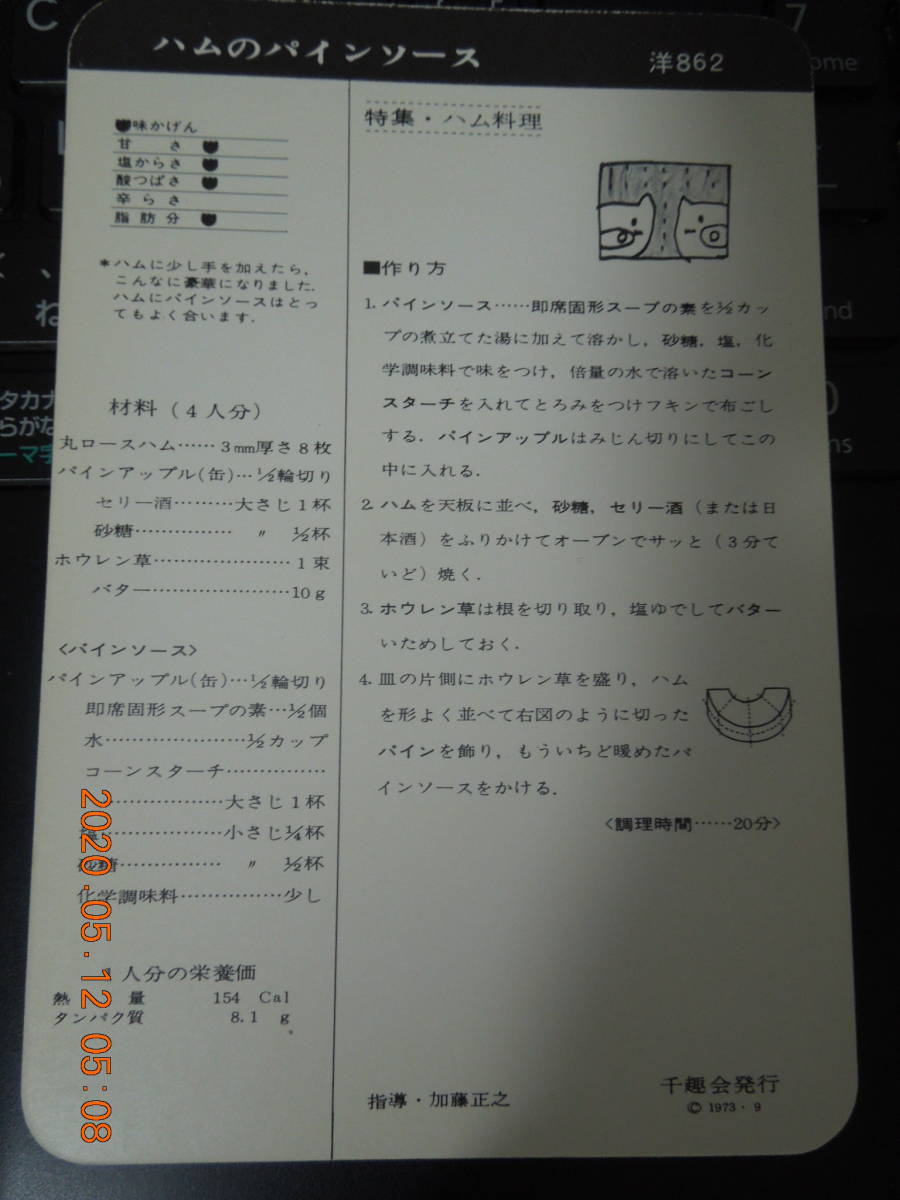 ハムのパインソース
洋862
味かげん
甘さ
塩からさ
酸つぱさ
辛らさ
脂肪分
*ハムに少し手を加えたら,
こんなに豪華になりました.
ハムにパインソースはとっ
てもよく合います.
材料(4人分)
丸ロースハム……3mm厚さ8枚
パインアップル(缶)…½輪切り
セリー酒………大さじ1杯
砂糖…………… 〃 ½杯
ホウレン草…………………1束
バター…………………10g
〈パインソース〉
パインアップル(缶)…½輪切り
即席固形スープの素…½個
水…………………½カップ
コーンスターチ……………
………………大さじ1杯
塩………………小さじ¼杯
砂糖…………… 〃 ½杯
化学調味料……………少し
人分の栄養価
熱量 154 Cal
タンパク質 8.1 g
特集・ハム料理
■作り方
1. パインソース……即席固形スープの素を½カッ
プの煮立てた湯に加えて溶かし,砂糖,塩,化
学調味料で味をつけ,倍量の水で溶いたコーン
スターチを入れてとろみをつけフキンで布ごし
する.パインアップルはみじん切りにしてこの
中に入れる.
2. ハムを天板に並べ,砂糖,セリー酒(または日
本酒)をふりかけてオーブンでサッと(3分て
いど)焼く.
3. ホウレン草は根を切り取り,塩ゆでしてバター
いためしておく.
4. 皿の片側にホウレン草を盛り,ハム
を形よく並べて右図のように切った
パインを飾り,もういちど暖めたパ
インソースをかける.
〈調理時間……20分〉
指導・加藤正之
千趣会発行
© 1973・9
2020.05.12 05:08
C
7
ome
ね
nd
タカナ
らがな
ーマ字
ns